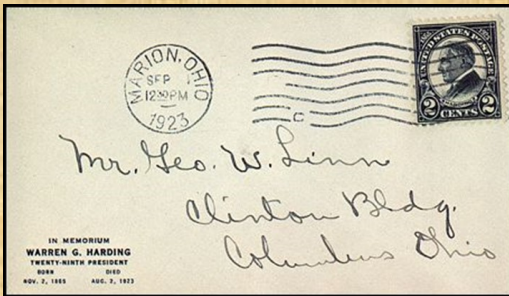 MARION, OHIO
SEP
12 30 PM
1923
C
UNITED STATES POSTAGE
2 2
CENTS
Mr. Geo. W. Linn
Clinton Bldg.
Columbus Ohio
IN MEMORIUM
WARREN G. HARDING
TWENTY-NINTH PRESIDENT
BORN DIED
NOV. 2, 1865 AUG. 2, 1923